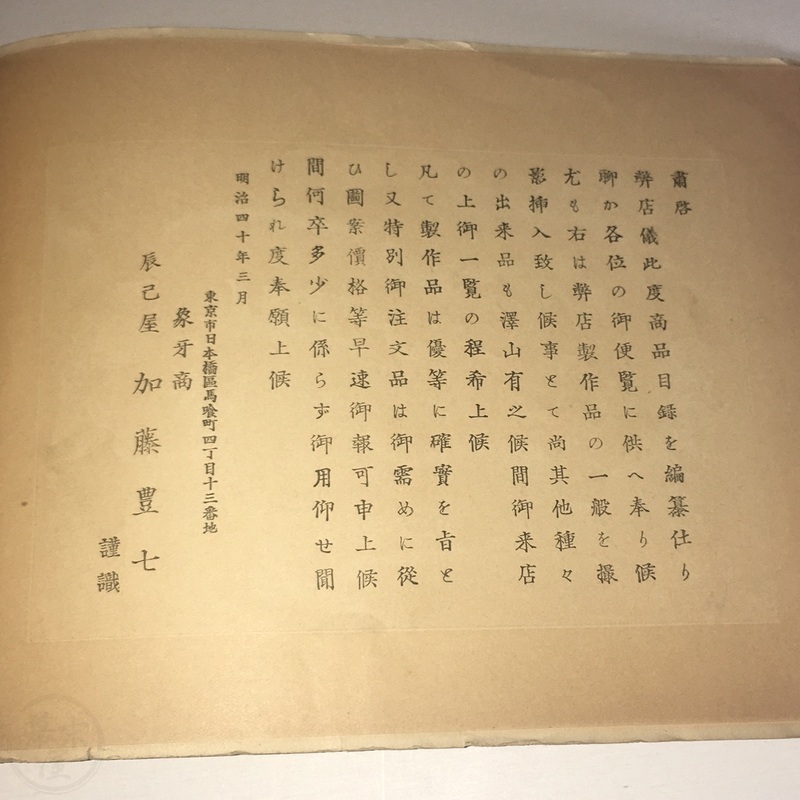 肅啓
弊店儀此度商品目録を編纂仕り
聊か各位の御便覧に供へ奉り候
尤も右は弊店製作品の一般を撮
影挿入致し候事とて尚其他種々
の出来品も澤山有之候間御来店
の上御一覧の程希上候
凡て製作品は優等に確實を旨と
し又特別御注文品は御需めに從
ひ圖案價格等早速御報可申上候
間何卒多少に係らず御用仰せ聞
けられ度奉願上候
明治四十年三月
東京市日本橋區馬喰町四丁目十三番地
象牙商
辰己屋 加藤豊七
謹識